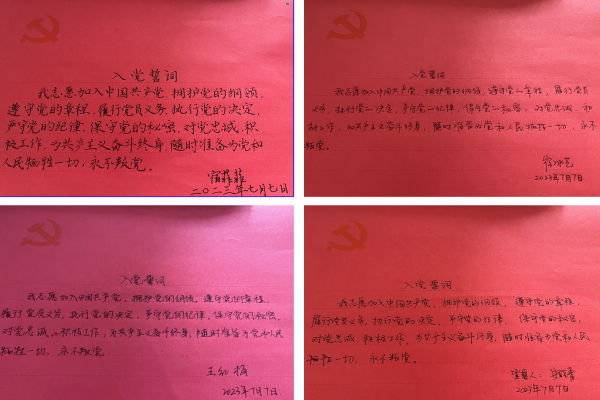 入党誓词
我志愿加入中国共产党，拥护党的纲领，
遵守党的章程，履行党员义务，执行党的决定，
严守党的纪律，保守党的秘密，对党忠诚，积
极工作，为共产主义奋斗终身，随时准备为党和
人民牺牲一切，永不叛党。
二〇二三年七月七日
入党誓词
我志愿加入中国共产党，拥护党的纲领，遵守党的章程，履行党员
义务，执行党的决定，严守党的纪律，保守党的秘密，对党忠诚，积
极工作，为共产主义奋斗终身，随时准备为党和人民牺牲一切，永不
叛党。
2023年7月7日
入党誓词
我志愿加入中国共产党，拥护党的纲领，遵守党的章程，
履行党员义务，执行党的决定，严守党的纪律，保守党的秘密，
对党忠诚，积极工作，为共产主义奋斗终身，随时准备为党和人民
牺牲一切，永不叛党。
王红梅
2023年7月7日
入党誓词
我志愿加入中国共产党，拥护党的纲领，遵守党的章程，
履行党员义务，执行党的决定，严守党的纪律，保守党的秘密，
对党忠诚，积极工作，为共产主义奋斗终身，随时准备为党和人民
牺牲一切，永不叛党。
宣誓人：
2023年7月7日